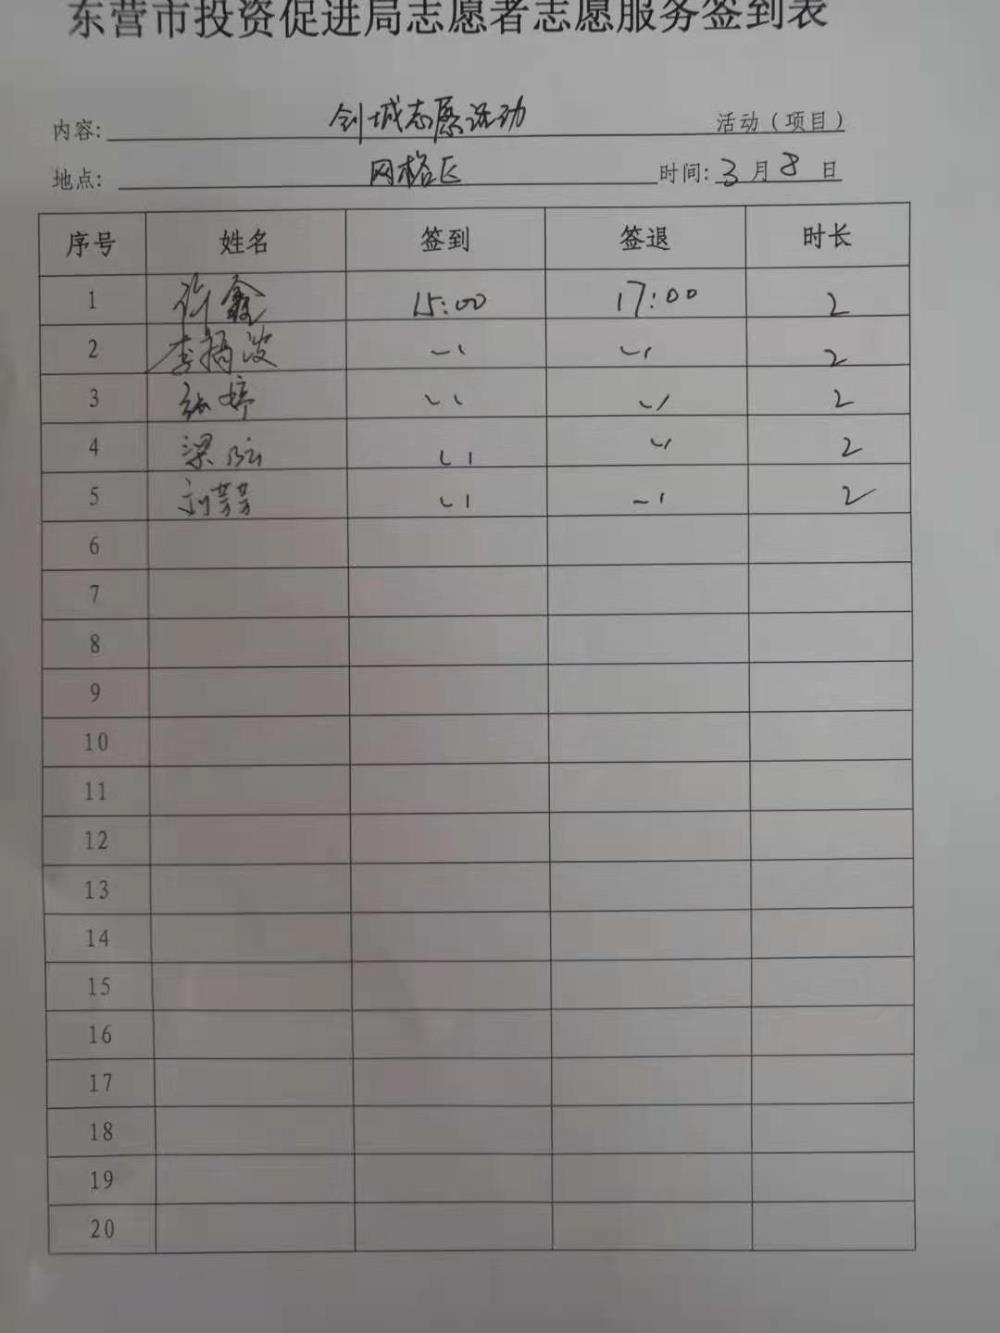 东营市投资促进局志愿者志愿服务签到表
内容: 创城志愿活动 活动（项目）
地点: 网格区 时间: 3 月 8 日
序号 姓名 签到 签退 时长
1 许鑫 15:00 17:00 2
2 李 波 〃 〃 2
3 张婷 〃 〃 2
4 梁 〃 〃 2
5 刘芳芳 〃 〃 2
6
7
8
9
10
11
12
13
14
15
16
17
18
19
20